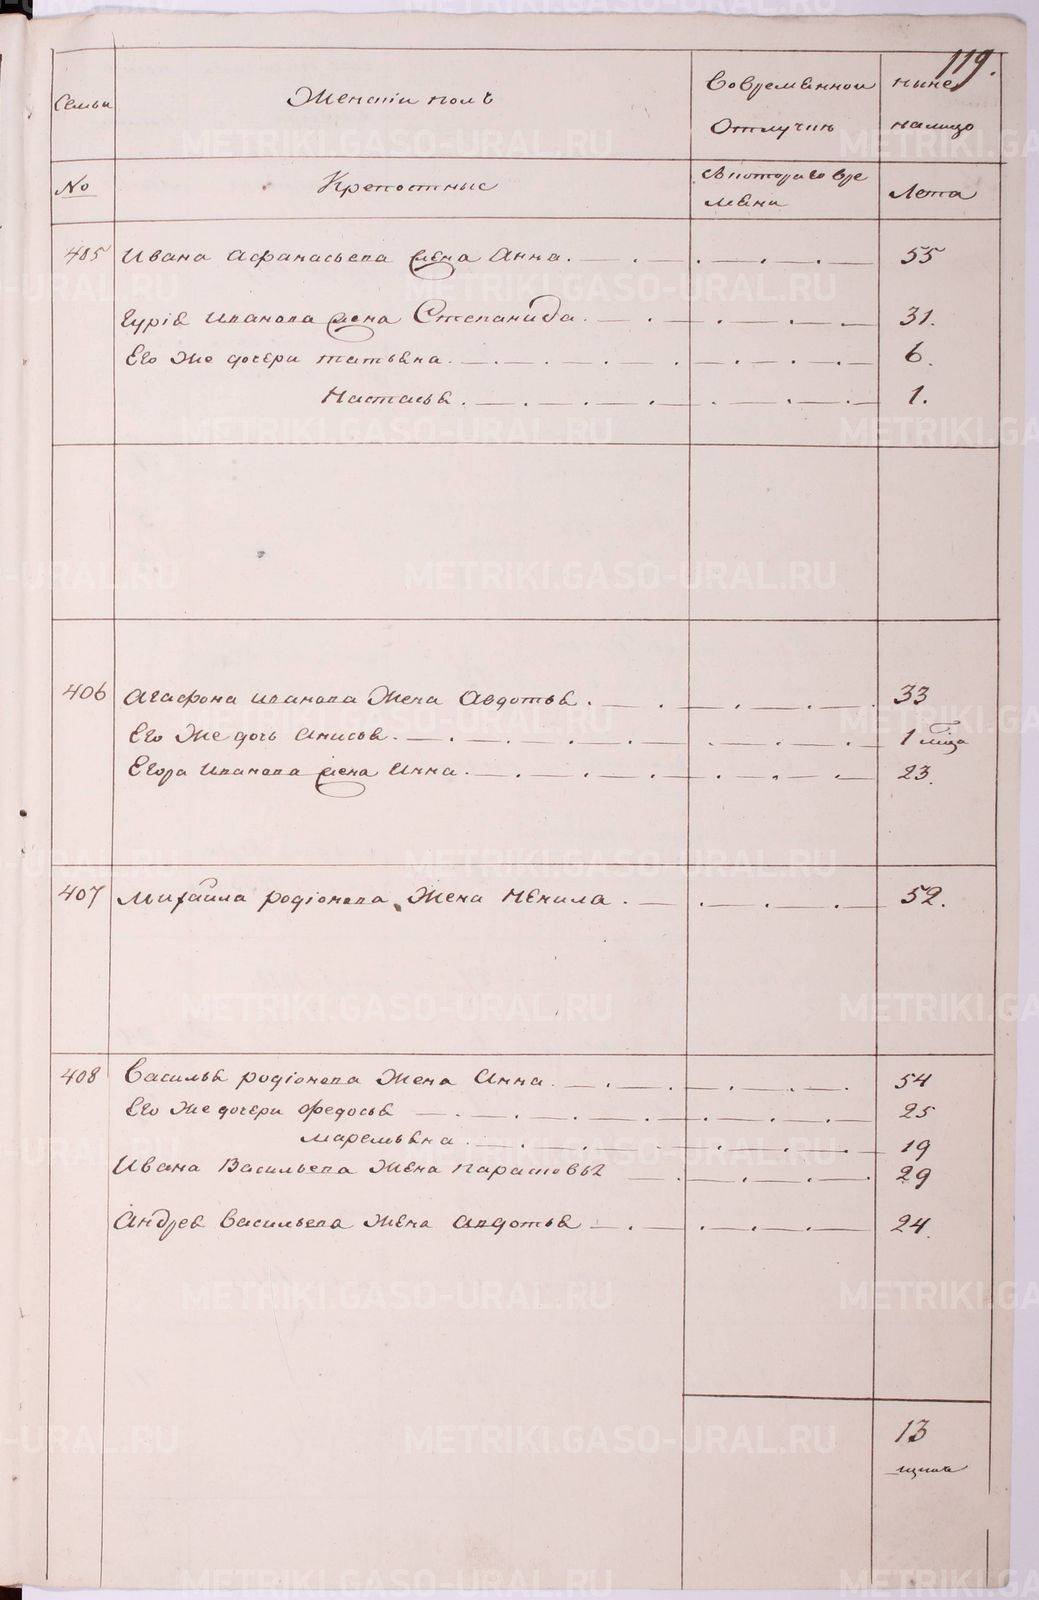 119.
Семьи
Женскiй полъ
Вовременной
ныне
Отлучин
налицо
No
Крепостные
Съ котораго вре
мени
Лета
405 Ивана Афанасьева жена Анна. 55
Гурiя Иванова жена Степанида. 31.
Его же дочери татьяна. 6.
Настасья. 1.
406 Агафона Иванова жена Авдотья. 33
Его же дочь Анисья. 1 м҃ца
Егора Иванова жена Анна. 23.
407 Михайла родiонова жена Ненила. 52.
408 Василья родiонова жена Анна. 54
Его же дочери Федосья 25
маремьяна. 19
Ивана Васильева жена парасковья 29
Андрея Васильева жена Авдотья 24.
13
METRIKI.GASO-URAL.RU